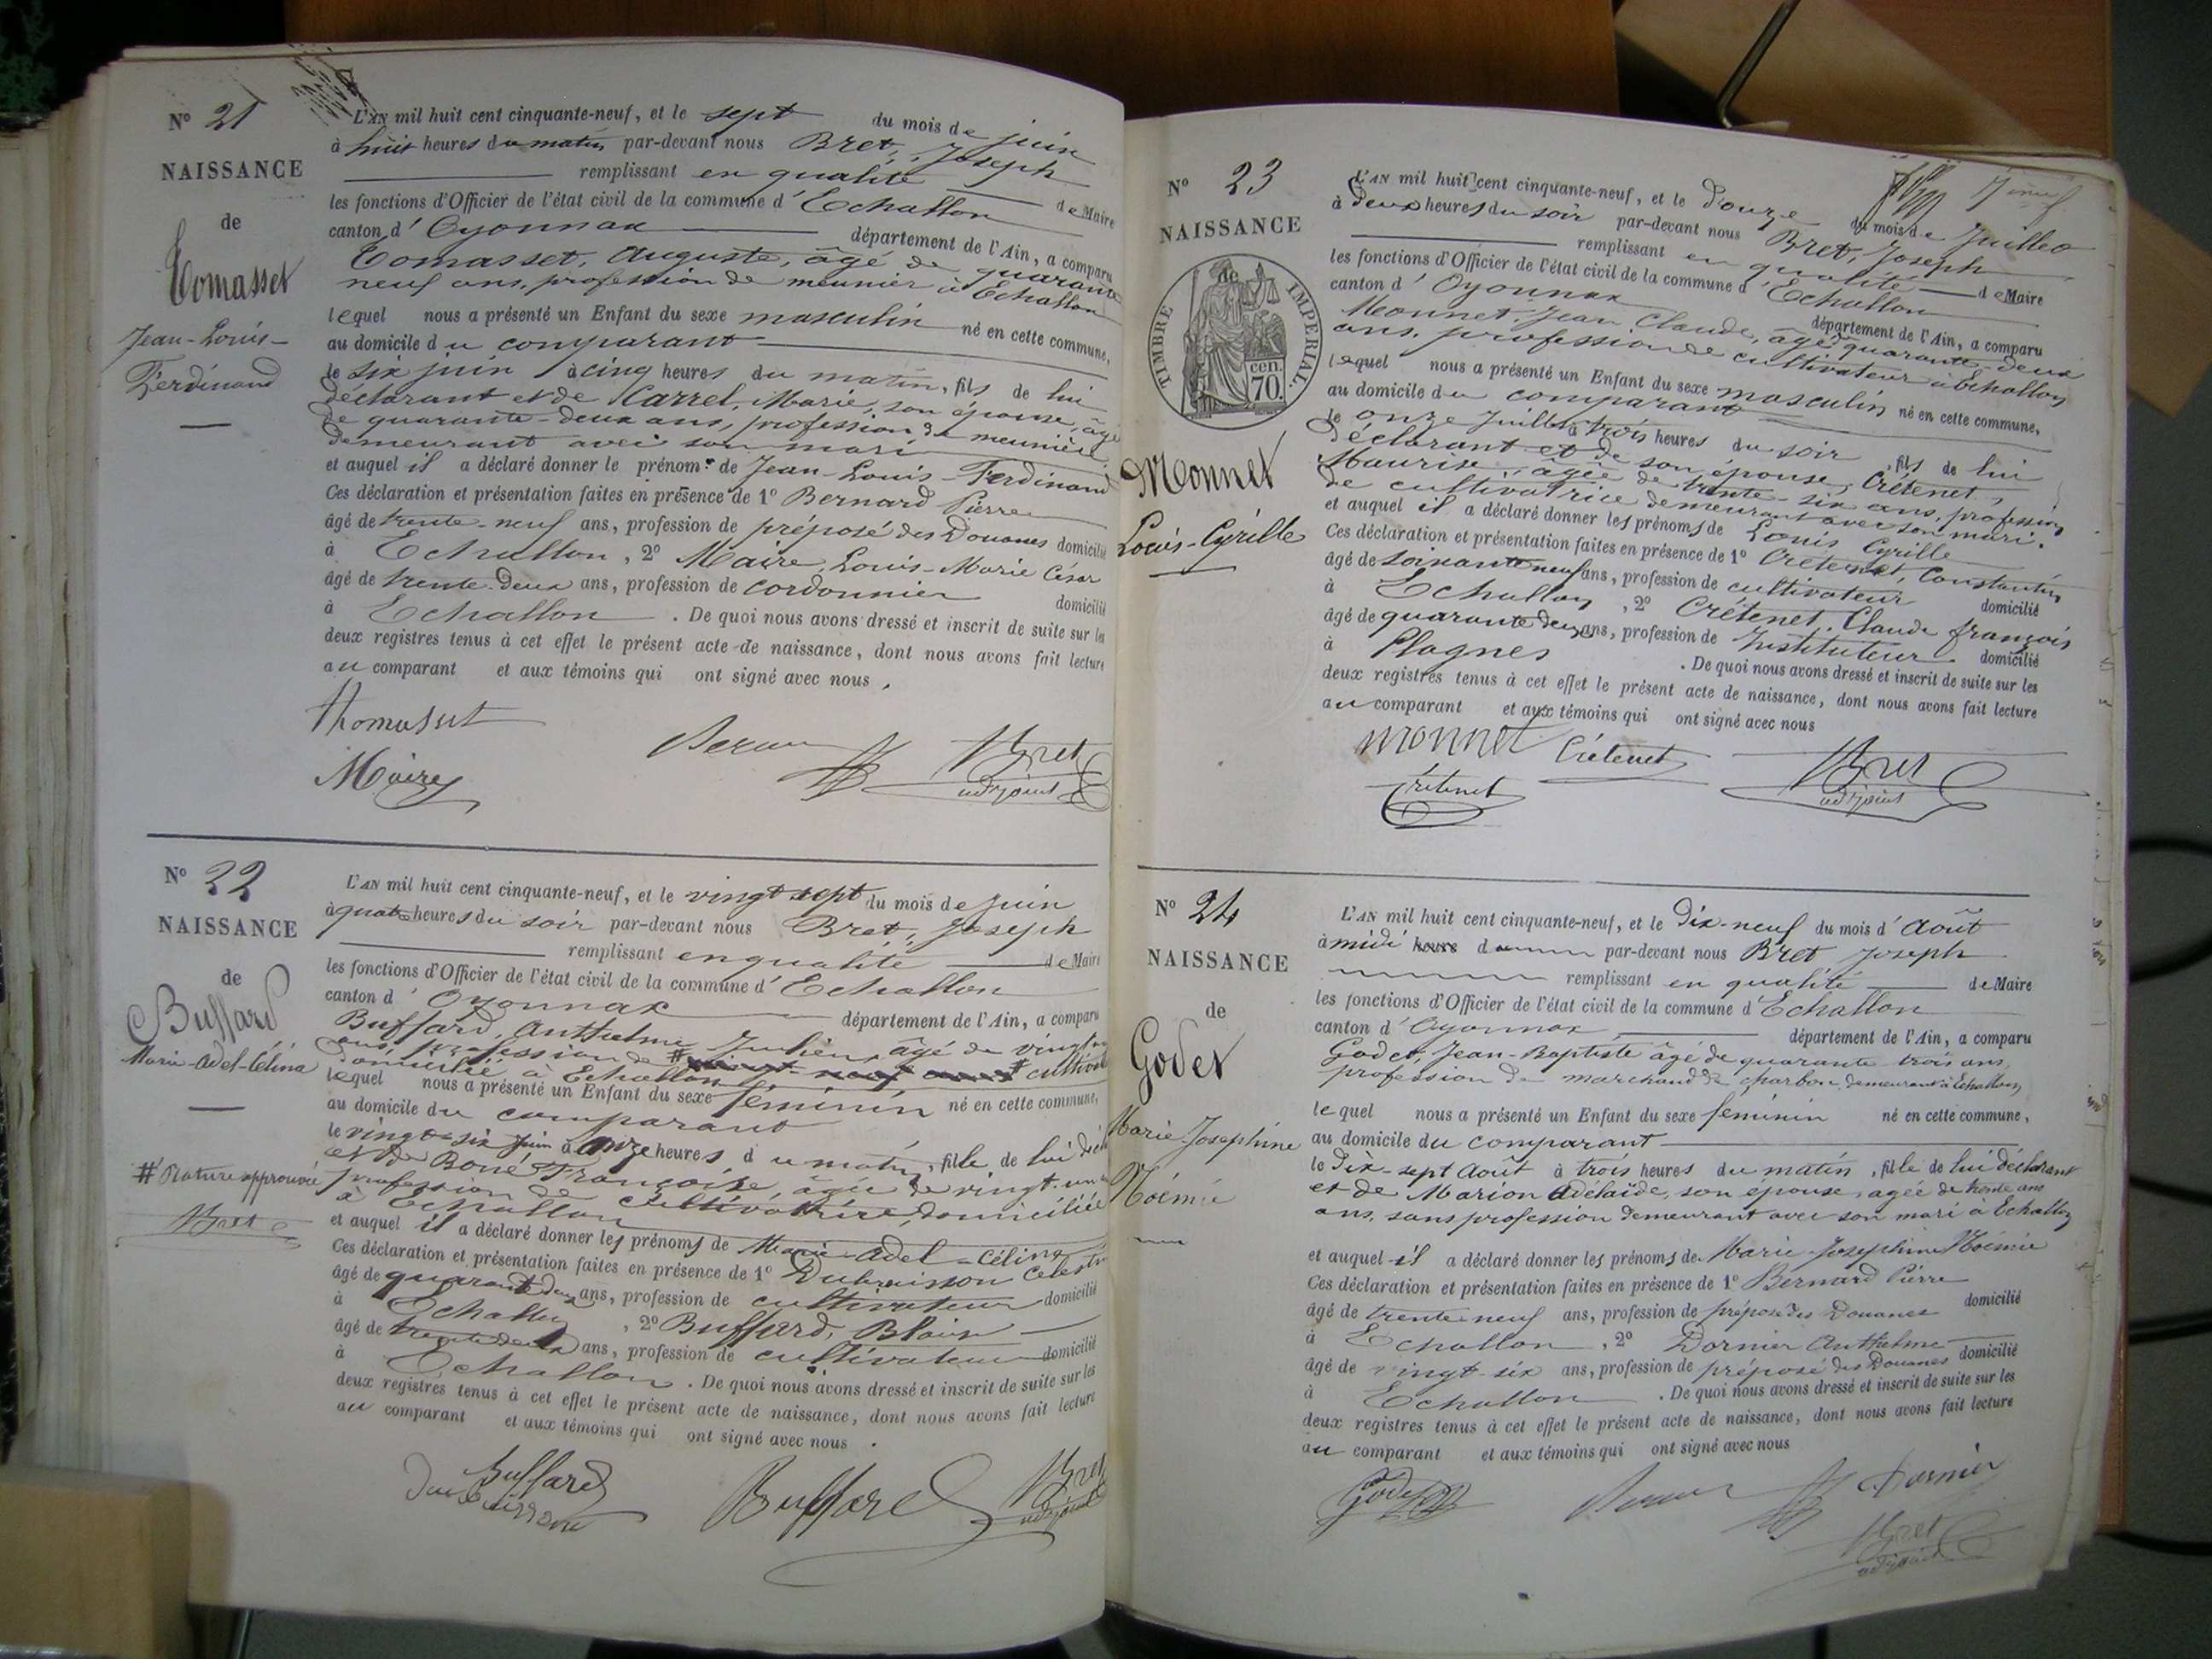 N° 21
NAISSANCE
de
Tomasset
Jean-Louis-
Ferdinand
L'AN mil huit cent cinquante-neuf, et le sept du mois de juin
à huit heures du matin par-devant nous Bret, Joseph
remplissant en qualité de Maire
les fonctions d'Officier de l'état civil de la commune d'Echallon
canton d'Oyonnax département de l'Ain, a comparu
Tomasset, Auguste, âgé de quarante
neuf ans, profession de meunier à Echallon
lequel nous a présenté un Enfant du sexe masculin né en cette commune,
au domicile du comparant
le six juin à cinq heures du matin, fils de lui
déclarant et de Carrel, Marie, son épouse, âgée
de quarante-deux ans, profession de meunière
demeurant avec son mari
et auquel il a déclaré donner le prénoms de Jean-Louis-Ferdinand
Ces déclaration et présentation faites en présence de 1° Bernard Pierre
âgé de trente-neuf ans, profession de préposé des Douanes domicilié
à Echallon, 2° Maire, Louis-Marie César
âgé de trente-deux ans, profession de cordonnier domicilié
à Echallon. De quoi nous avons dressé et inscrit de suite sur les
deux registres tenus à cet effet le présent acte de naissance, dont nous avons fait lecture
au comparant et aux témoins qui ont signé avec nous.
Thomasset
Bret
adjoint
Maire
N° 22
NAISSANCE
de
Buffard
Marie-Adel-Célina
# Rature approuvée
Bret
L'AN mil huit cent cinquante-neuf, et le vingt sept du mois de juin
à quatre heures du soir par-devant nous Bret, Joseph
remplissant en qualité de Maire
les fonctions d'Officier de l'état civil de la commune d'Echallon
canton d'Oyonnax département de l'Ain, a comparu
Buffard, Anthelme Julien, âgé de vingt
ans, profession de # # cultivat
domicilié à Echallon
lequel nous a présenté un Enfant du sexe féminin né en cette commune,
au domicile du comparant
le vingt-six juin à onze heures du matin, fille de lui décl
et de Boné Françoise, âgée de vingt-un
profession de cultivatrice, domiciliée
à Echallon
et auquel il a déclaré donner les prénoms de Marie-Adel-Célina
Ces déclaration et présentation faites en présence de 1° Dubuisson Célestin
âgé de quarante deux ans, profession de cultivateur domicilié
à Echallon, 2° Buffard, Blaise
âgé de trente deux ans, profession de cultivateur domicilié
à Echallon. De quoi nous avons dressé et inscrit de suite sur les
deux registres tenus à cet effet le présent acte de naissance, dont nous avons fait lecture
au comparant et aux témoins qui ont signé avec nous.
Buffard
Dubuisson
Buffard
Bret
adjoint
N° 23
NAISSANCE
de
TIMBRE IMPERIAL.
cen.
70.
Monnet
Louis-Cyrille
L'AN mil huit cent cinquante-neuf, et le Douze du mois de Juillet
à deux heures du soir par-devant nous Bret, Joseph
remplissant en qualité de Maire
les fonctions d'Officier de l'état civil de la commune d'Echallon
canton d'Oyonnax département de l'Ain, a comparu
Monnet, Jean Claude, âgé quarante-deux
ans, profession de cultivateur à Echallon
lequel nous a présenté un Enfant du sexe masculin né en cette commune,
au domicile du comparant
le onze Juillet à trois heures du soir, fils de lui
déclarant et de son épouse, Crétenet,
Maurise, âgée de trente-six ans, profession
de cultivatrice demeurant avec son mari.
et auquel il a déclaré donner les prénoms de Louis Cyrille
Ces déclaration et présentation faites en présence de 1° Crétenet, Constantin
âgé de soixante neuf ans, profession de cultivateur domicilié
à Echallon, 2° Crétenet, Claude françois
âgé de quarante deux ans, profession de Instituteur domicilié
à Plagnes. De quoi nous avons dressé et inscrit de suite sur les
deux registres tenus à cet effet le présent acte de naissance, dont nous avons fait lecture
au comparant et aux témoins qui ont signé avec nous
Monnet Crétenet Bret
Crétenet adjoint
N° 24
NAISSANCE
de
Godet
Marie Josephine
Noémie
L'AN mil huit cent cinquante-neuf, et le Dix-neuf du mois d'Août
à midi heure d par-devant nous Bret Joseph
remplissant en qualité de Maire
les fonctions d'Officier de l'état civil de la commune d'Echallon
canton d'Oyonnax département de l'Ain, a comparu
Godet, Jean-Baptiste âgé de quarante trois ans,
profession de marchand de charbon demeurant à Echallon
lequel nous a présenté un Enfant du sexe féminin né en cette commune,
au domicile du comparant
le Dix-sept Août à trois heures du matin, fille de lui déclarant
et de Marion Adélaïde, son épouse, agée de trente ans
ans, sans profession demeurant avec son mari à Echallon
et auquel il a déclaré donner les prénoms de Marie-Josephine Noémie
Ces déclaration et présentation faites en présence de 1° Bernard Pierre
âgé de trente neuf ans, profession de préposé des Douanes domicilié
à Echallon, 2° Dornier Anthelme
âgé de vingt-six ans, profession de préposé des Douanes domicilié
à Echallon. De quoi nous avons dressé et inscrit de suite sur les
deux registres tenus à cet effet le présent acte de naissance, dont nous avons fait lecture
au comparant et aux témoins qui ont signé avec nous
Godet Dornier
Bret
adjoint